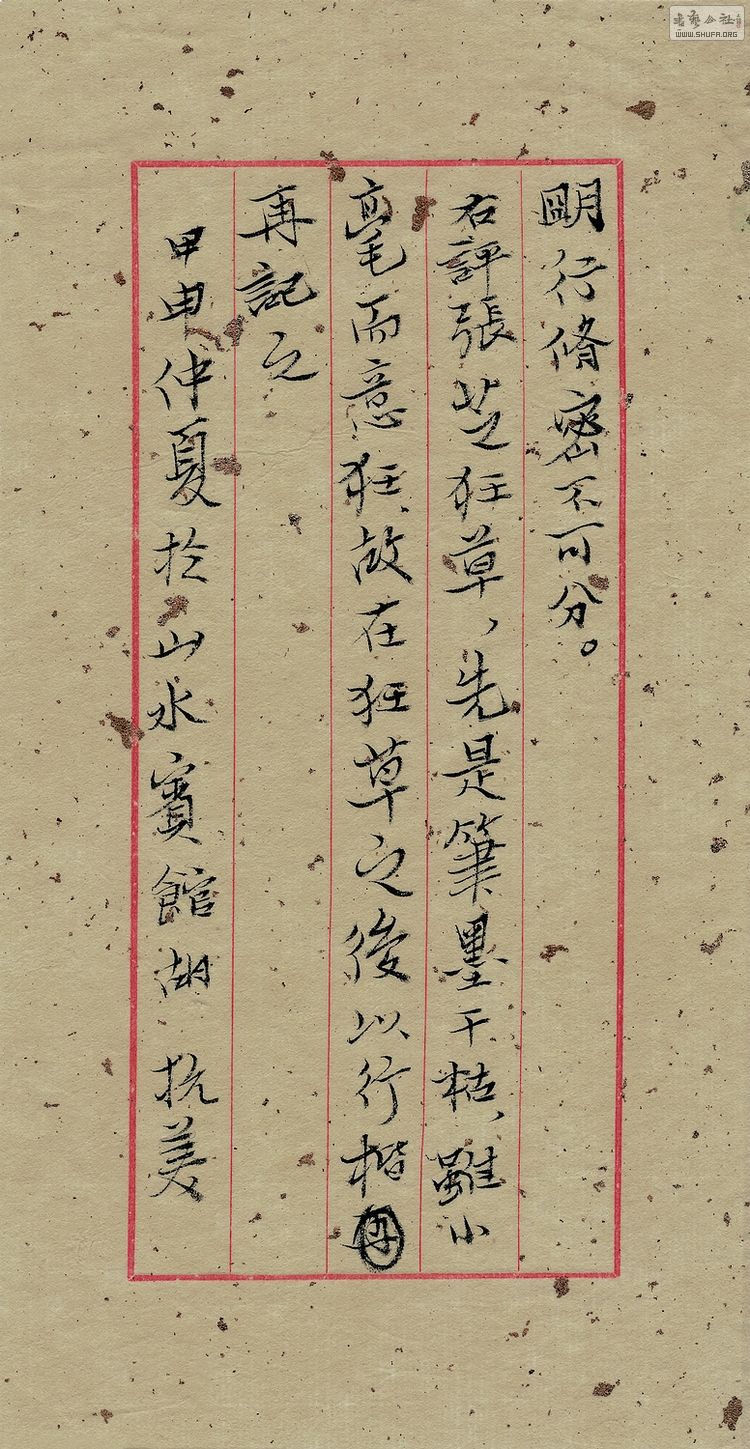 明行脩密不可分。
右評張芝狂草，先是筆墨干枯、雖小
毫而意狂、故在狂草之後以行楷再
再記之
甲申仲夏於山水賓館胡抗美
WWW.SHUFA.ORG